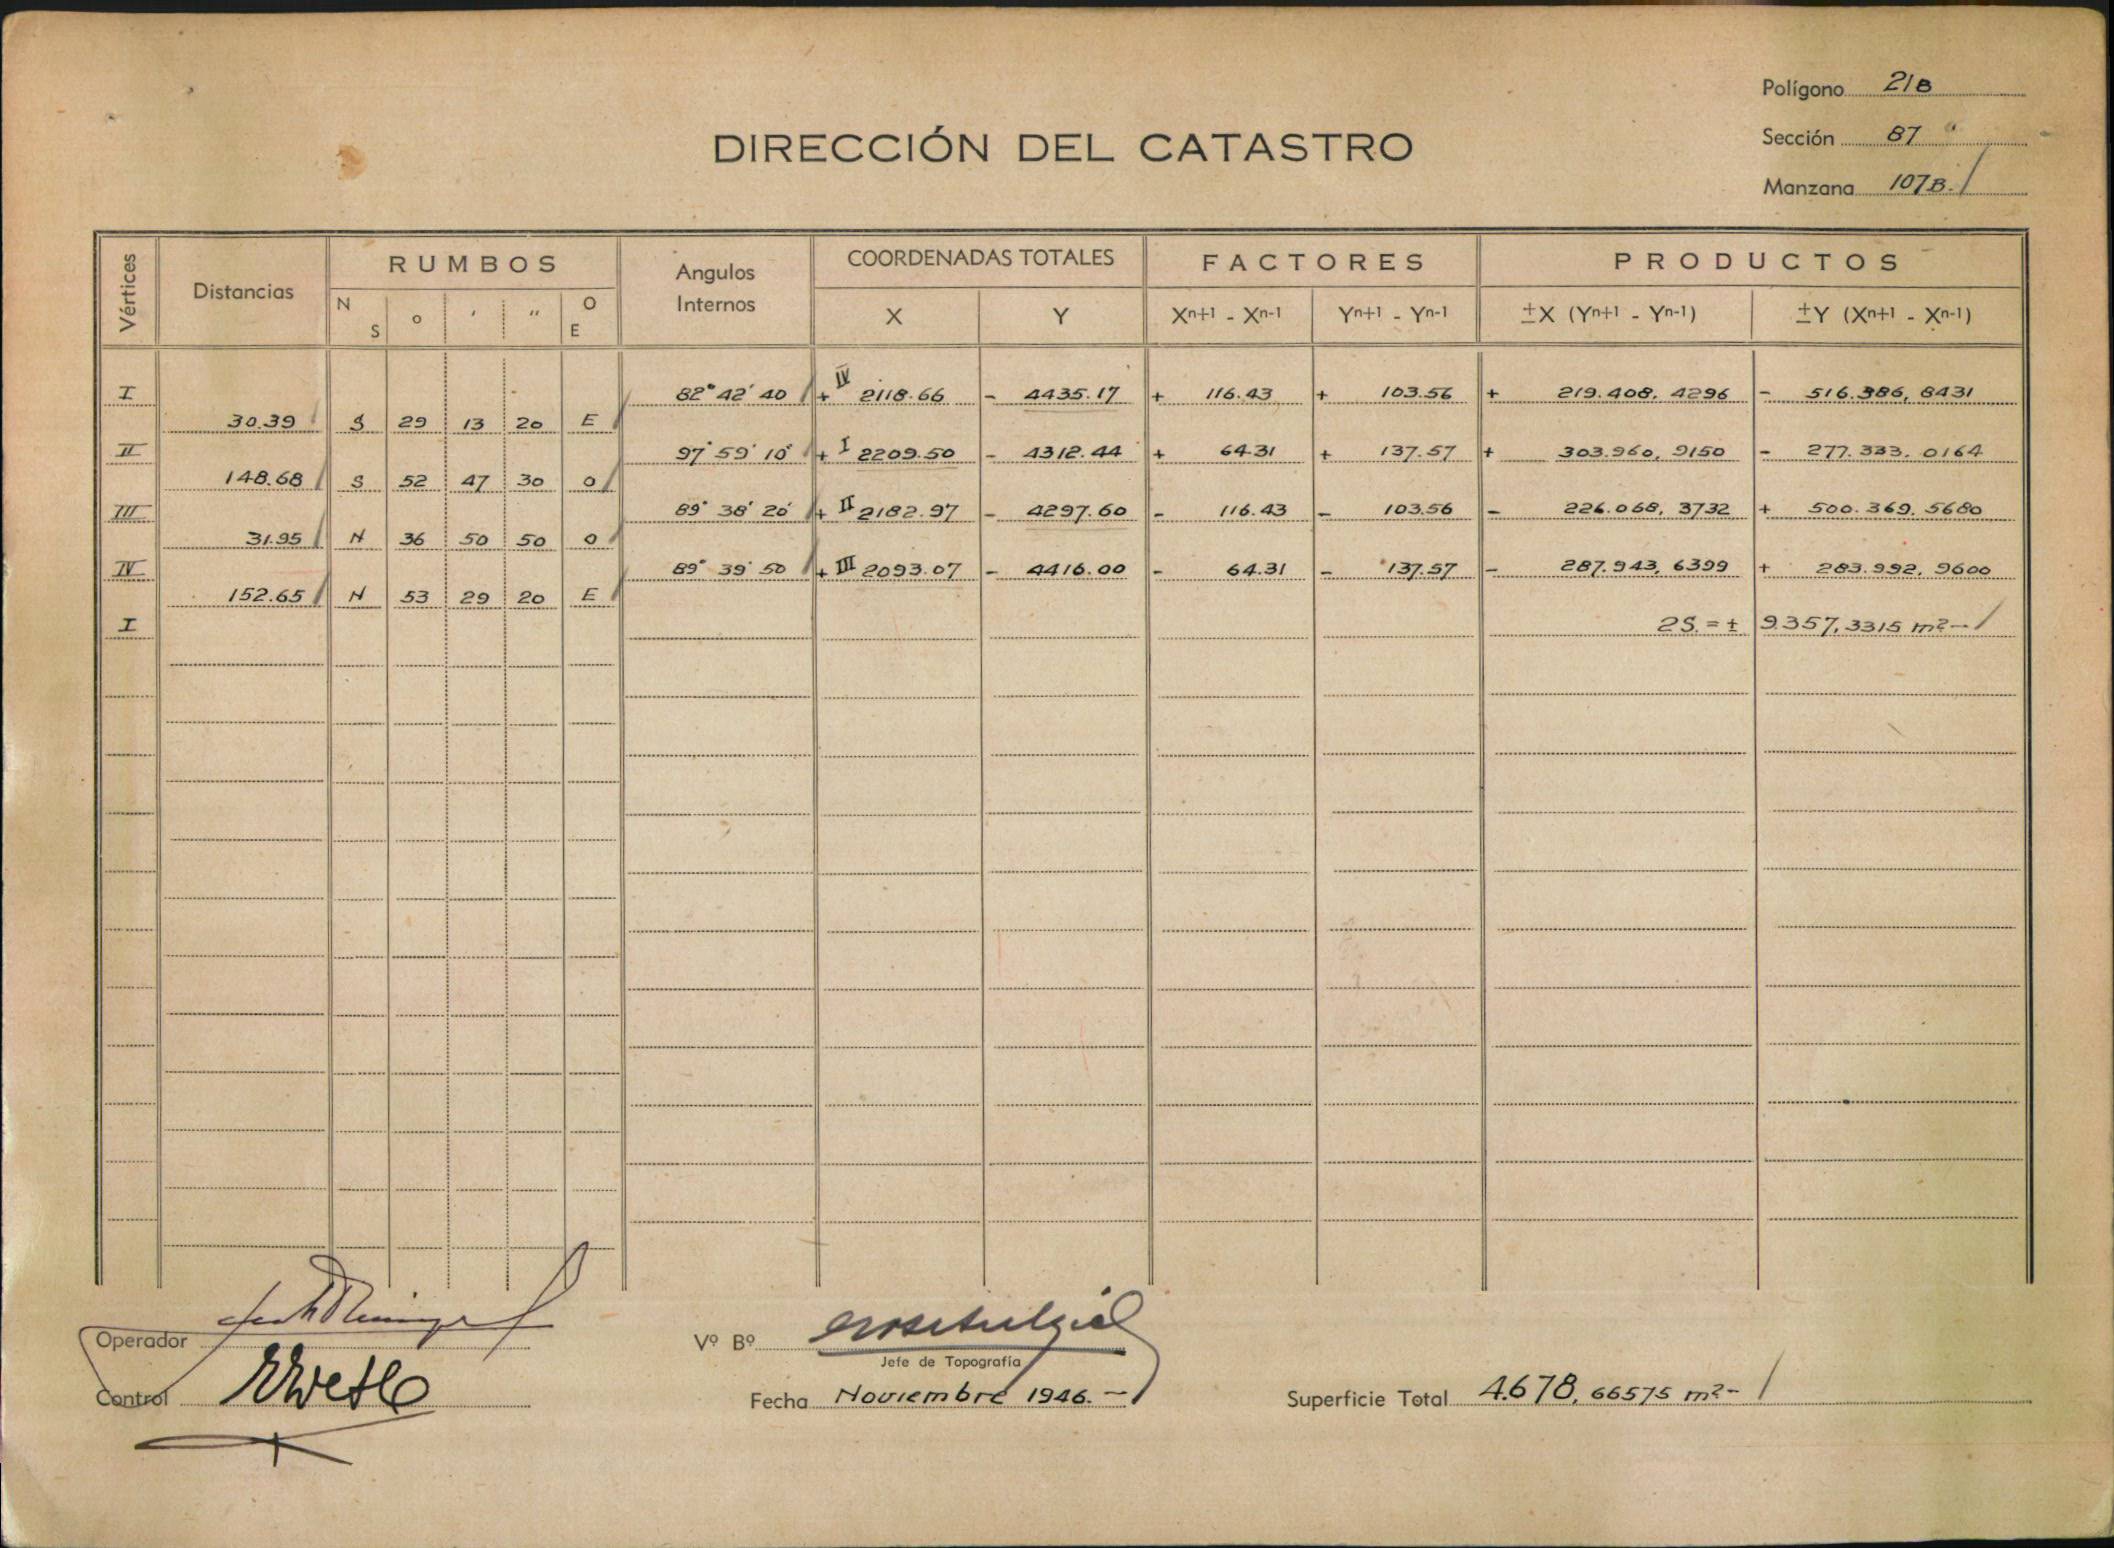 Polígono 21B
Sección 87
Manzana 107B.
DIRECCIÓN DEL CATASTRO
Vértices Distancias RUMBOS Angulos Internos COORDENADAS TOTALES FACTORES PRODUCTOS
N S o ' " O E X Y Xn+1 - Xn-1 Yn+1 - Yn-1 ±X (Yn+1 - Yn-1) ±Y (Xn+1 - Xn-1)
I 82° 42' 40 + IV 2118.66 - 4435.17 + 116.43 + 103.56 + 219.408, 4296 - 516.386, 8431
30.39 S 29 13 20 E
II 97° 59' 10" + I 2209.50 - 4312.44 + 64.31 + 137.57 + 303.960, 9150 - 277.333. 0164
148.68 S 52 47 30 O
III 89° 38' 20" + II 2182.97 - 4297.60 - 116.43 - 103.56 - 226.068, 3732 + 500.369. 5680
31.95 N 36 50 50 O
IV 89° 39' 50 + III 2093.07 - 4416.00 - 64.31 - 137.57 - 287.943, 6399 + 283.992, 9600
152.65 N 53 29 20 E
I 2S. = ± 9.357, 3315 m² -
Operador
Vº Bº
Jefe de Topografía
Control
Fecha Noviembre 1946. -
Superficie Total 4.678, 66575 m² -